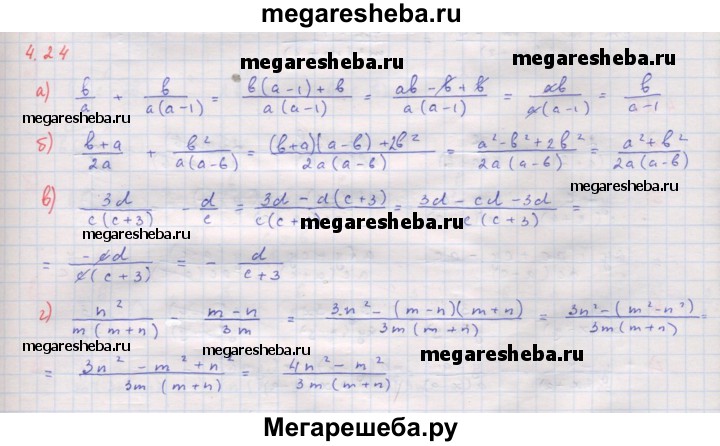 megaresheba.ru
4.24
megaresheba.ru megaresheba.ru
а) b/a + b/(a(a-1)) = (b(a-1)+b)/(a(a-1)) = (ab-b+b)/(a(a-1)) = ab/(a(a-1)) = b/(a-1)
megaresheba.ru
б) (b+a)/2a + b²/(a(a-b)) = ((b+a)(a-b)+2b²)/(2a(a-b)) = (a²-b²+2b²)/(2a(a-b)) = (a²+b²)/(2a(a-b))
megaresheba.ru
в) 3d/(c(c+3)) - d/c = (3d-d(c+3))/(c(c+3)) = (3d-cd-3d)/(c(c+3)) =
megaresheba.ru megaresheba.ru
= -cd/(c(c+3)) = - d/(c+3)
г) n²/(m(m+n)) - (m-n)/3m = (3n²-(m-n)(m+n))/(3m(m+n)) = (3n²-(m²-n²))/(3m(m+n)) =
megaresheba.ru megaresheba.ru megaresheba.ru
= (3n²-m²+n²)/(3m(m+n)) = (4n²-m²)/(3m(m+n))
Мегарешеба.ру